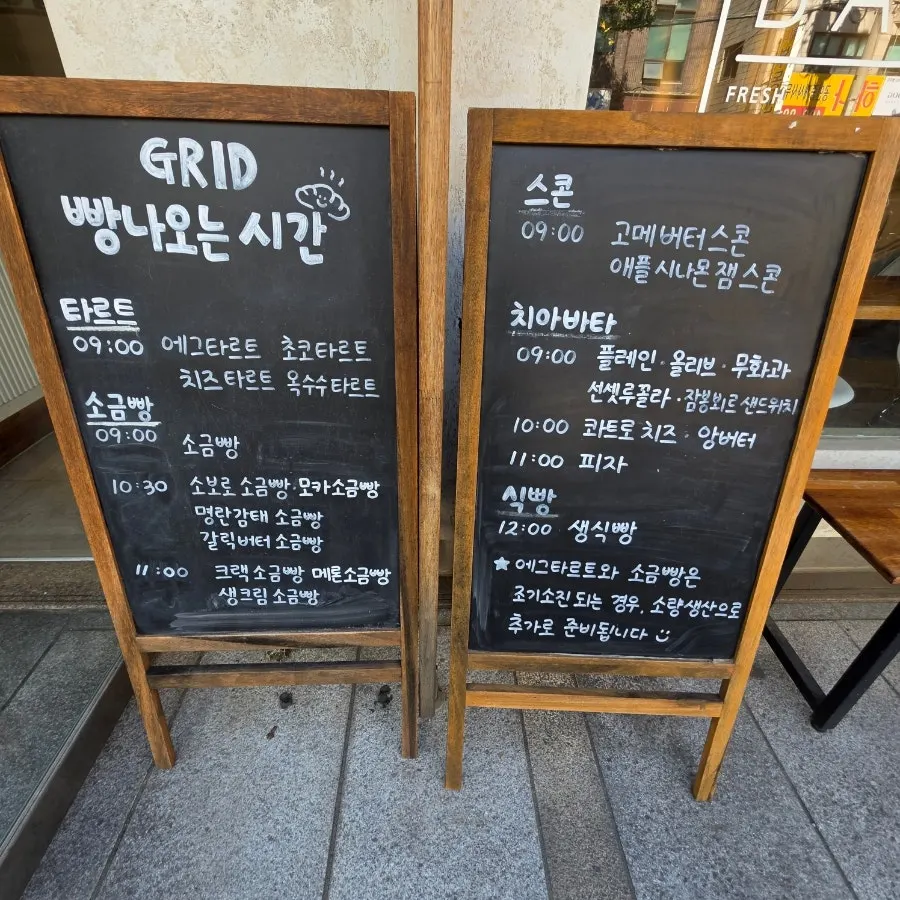 GRID
빵나오는 시간
타르트
09:00 에그타르트 초코타르트
치즈타르트 옥수수타르트
소금빵
09:00
소금빵
10:30 소보로 소금빵·모카소금빵
명란감태 소금빵
갈릭버터 소금빵
11:00 크랙소금빵 메론소금빵
생크림 소금빵
스콘
09:00 고메버터스콘
애플시나몬잼스콘
치아바타
09:00 플레인·올리브·무화과
선셋루꼴라·잠봉뵈르샌드위치
10:00 콰트로치즈·앙버터
11:00 피자
식빵
12:00 생식빵
★에그타르트와 소금빵은
조기소진 되는 경우, 소량생산으로
추가로 준비됩니다
FRESH